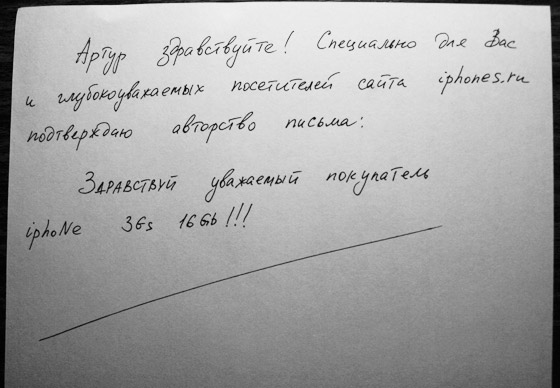 Артур здравствуйте! Специально для Вас
и глубокоуважаемых посетителей сайта iphones.ru
подтверждаю авторство письма:
ЗДРАВСТВУЙ уважаемый покупатель
iphoNe 3Gs 16Gb!!!